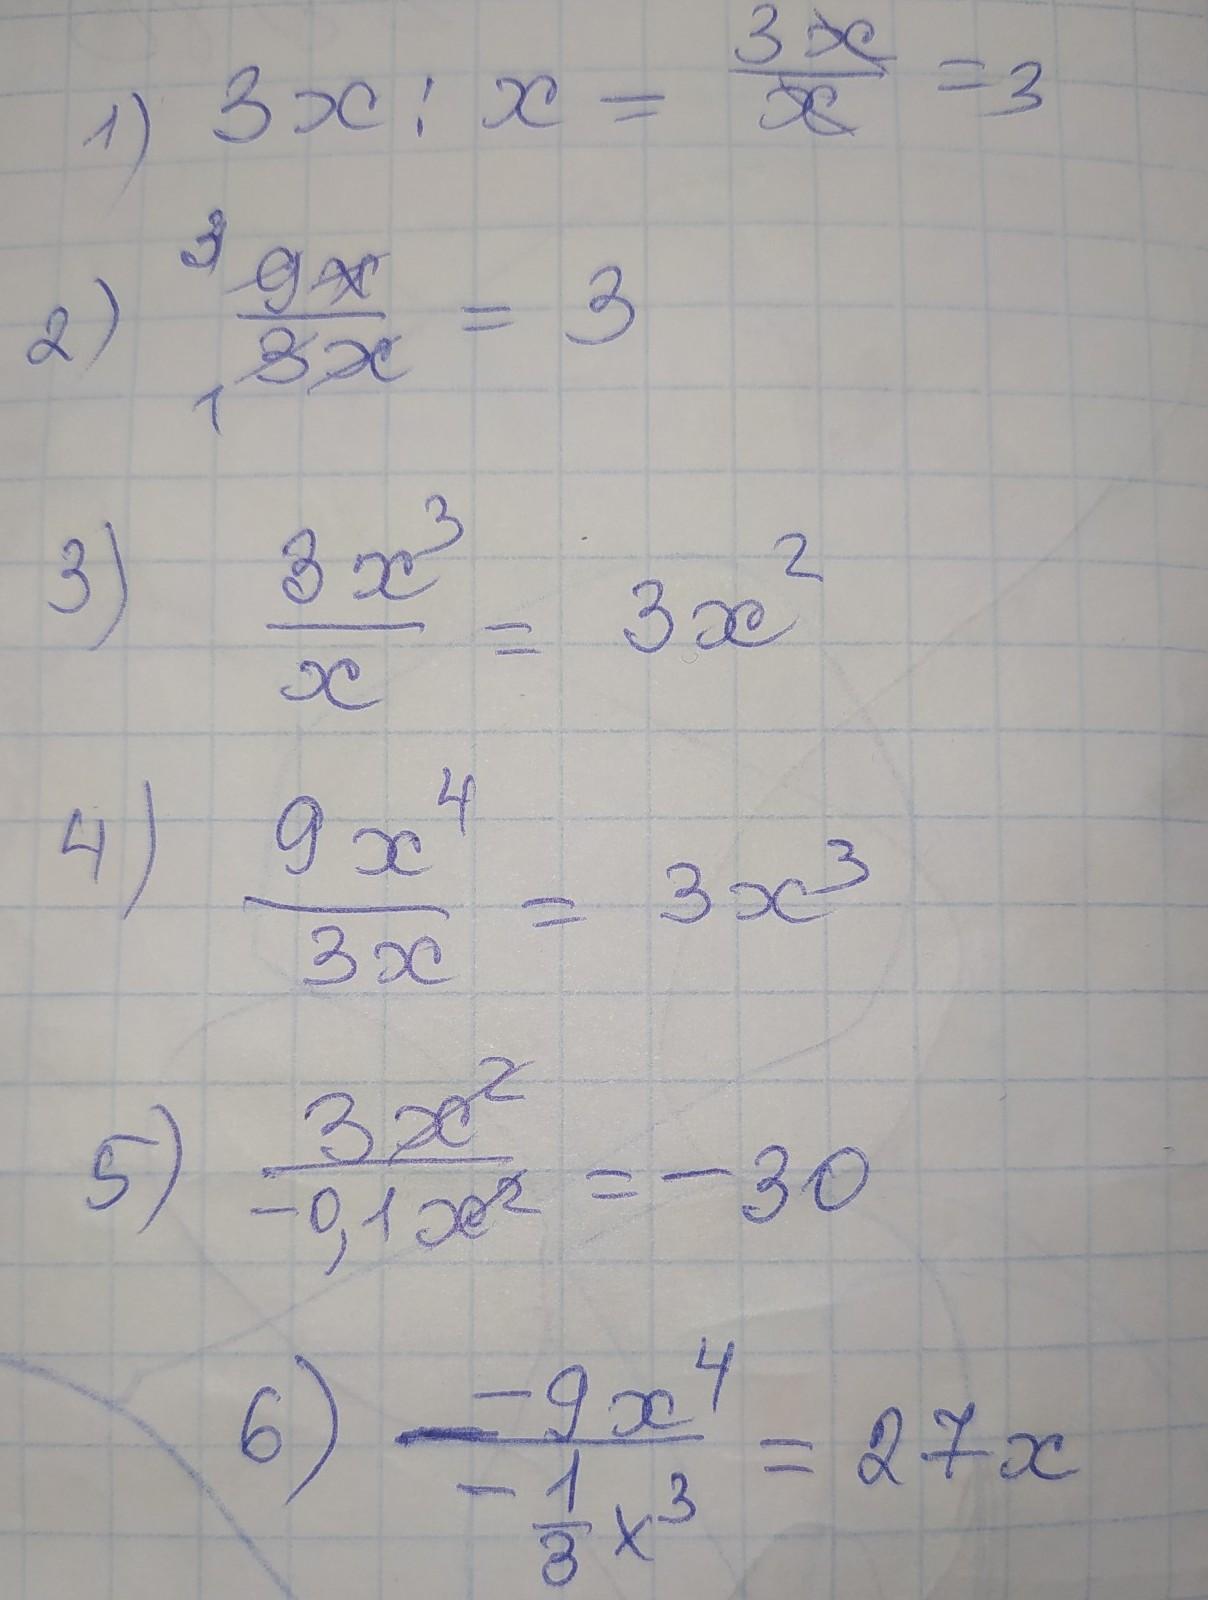 1) 3x : x = 3x/x = 3
2) ³9x/₁3x = 3
3) 3x³/x = 3x²
4) 9x⁴/3x = 3x³
5) 3x²/-0,1x² = -30
6) -9x⁴/-1/3x³ = 27x